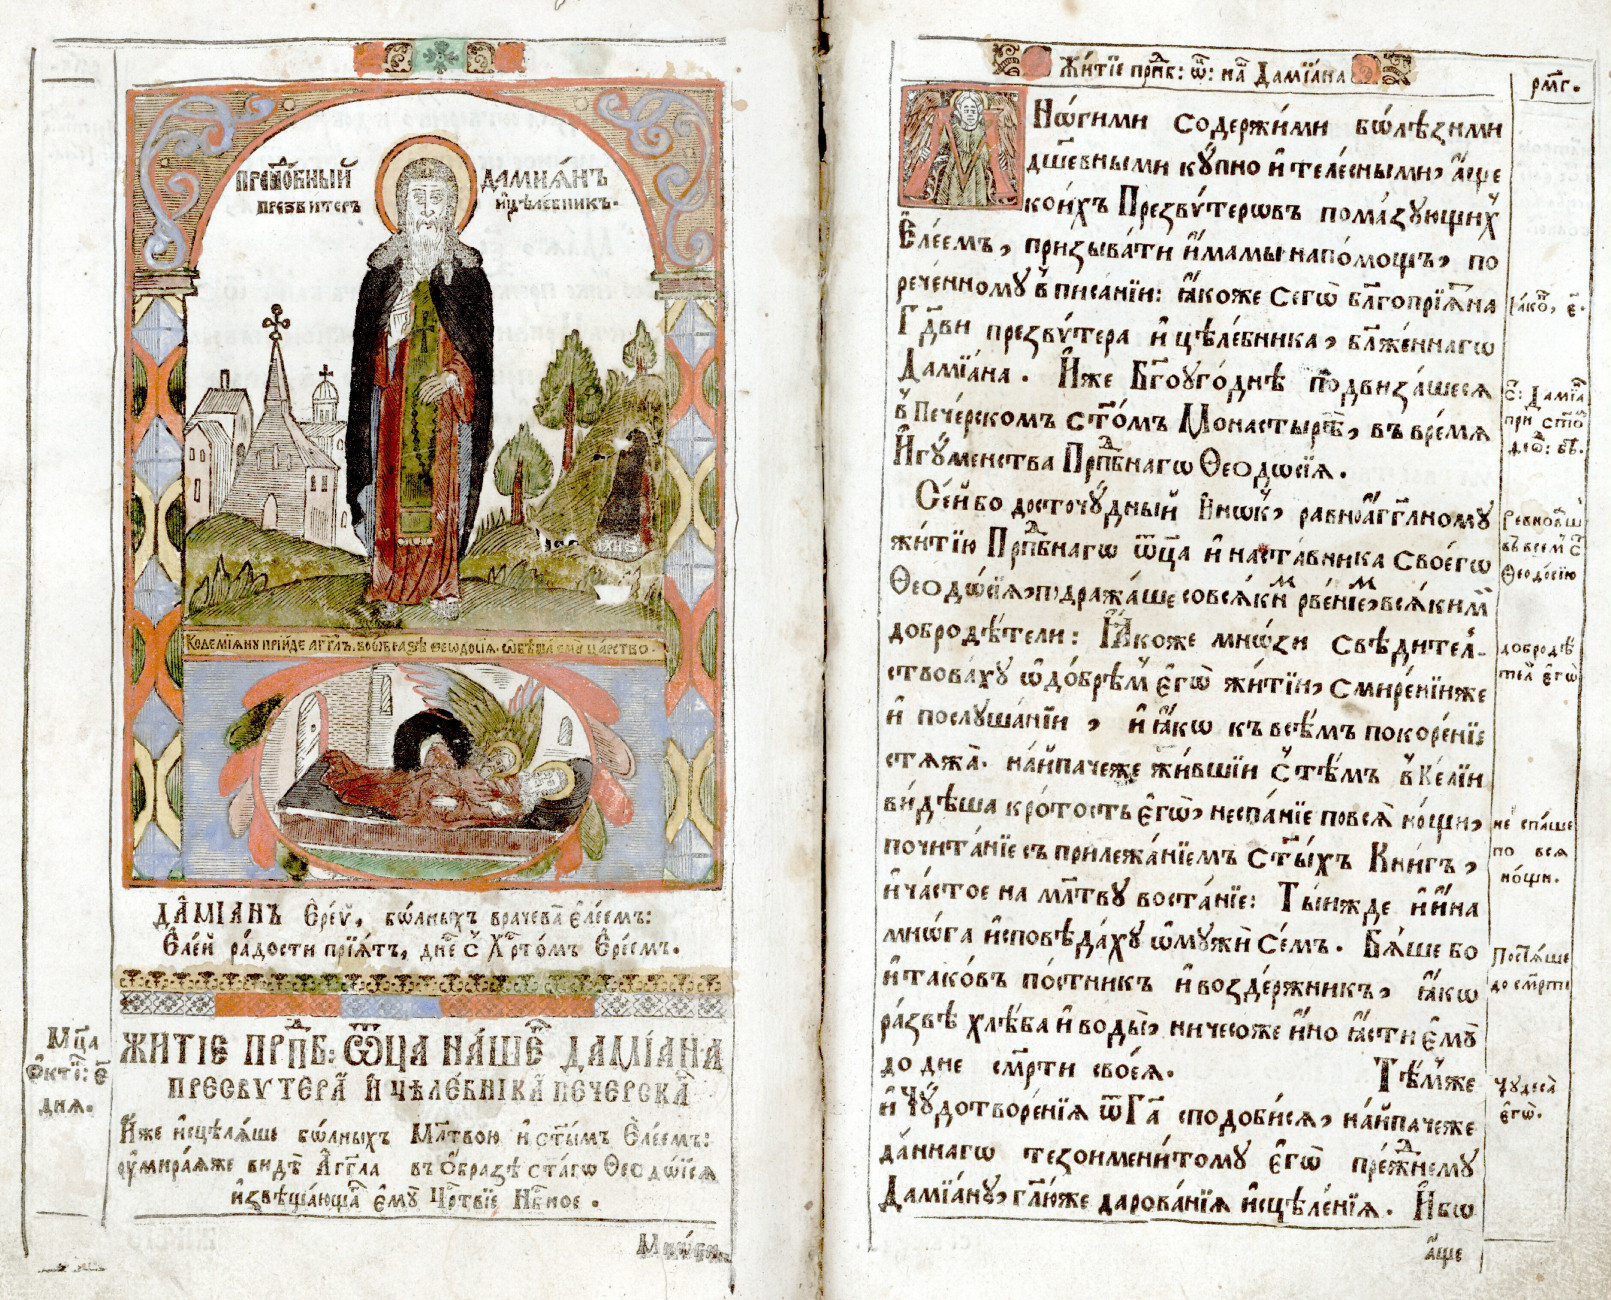 ПРЕПОДОБНЫЙ ДАМИѦНЪ
ПРЕЗВИТЕРЪ И҆ЦѢЛЕБНИКЪ.
КОДЕМІѦНУ ПРІЙДЕ АГГЛЪ. ВООБРАЗѢ ѲЕѠДОСІЯ. ѠБѢЩА ЕМУ ЦАРСТВО.
ДА҆МІАНЪ Е҆ре́й, бѡ́лныхъ врачева̀ є҆ле́емъ:
Е҆ле́й ра́дости прїѧ́тъ, дне́ съ Хрⷭ҇то́мъ Е҆ре́емъ.
ЖИТІЕ ПРПⷣБ: Ѿ҃ЦА НА́ШЕГѠ ДАМІ́АНА
ПРЕСВУТЕРА И҆ ЦѢЛЕ́БНІКА ПЕЧЕРСКА
Мⷭ҇ца
Ѻ҆ктї: є҃
дня.
И҆́же и҆сцѣлѧ́ше бѡ́лныхъ Мл҃твою и҆ ст҃ы́мъ Е҆ле́емъ:
ѹ҆мира́ѧже видѣ̀ А҆́гг҃ла въ Ѻ҆́бразѣ ст҃а́гѡ Ѳеодѡ́сїѧ
и҆звѣща́юща є҆мꙋ̀ Црⷭ҇твїе Нбⷭ҇ное.
Мнѡ́ги
Житїе прпⷣб: ѿ: на́ш Дамїа́на
рм҃г.
МНѠ́гими содержи́ми бѡлѣ́зими
дш҃е́вными кꙋ́пно и҆ теле́сными, а҆́ще
кои́хъ Презвѵ́терѡвъ пома́зꙋющих
Е҆ле́емъ, призыва́ти и҆́мамы напо́мощъ, по
рече́нномꙋ в писа́нїи: ꙗ҆́коже Сегѡ̀ бл҃гопрїѧ́тна
Гдⷭ҇ви презвѵ́тера и҆ цѣле́бника, бл҃же́ннагѡ
Дамїа́на. И҆́же Бг҃оуго́днѣ подвиза́шесѧ
в Пече́рскомъ ст҃о́мъ Монастырѣ̀, въ вре́мѧ
И҆гꙋ́менства Прпⷣбнагѡ Ѳеодѡ́сїѧ.
Се́й бо досточꙋ́дный И҆нѡк, равноа҆́гг҃лномꙋ
житїю Прпⷣбнагѡ ѻ҆ц҃а и҆ наста́вника Своегѡ̀
Ѳеодѡ́сїѧ, подража́ше совсѧ́ким рве́нїем, всѧ́ким
добродѣ́тели: Ꙗ҆́коже мнѡ́зи свѣди́тел-
ствова́хꙋ ѡ҆ до́брѣм є҆гѡ̀ житїи, смире́нїиже
и҆ послꙋша́нїи, и҆ ꙗ҆́кѡ къ всѣ́мъ покоре́нїе
стѧжа̀. на́йпачеже жи́вшїи с тѣ́мъ в Ке́лїи
ви́дѣша кро́тость є҆гѡ̀, неспа́нїе повсѧ̀ но́щи,
почита́нїе съ прилежа́нїемъ ст҃ы́хъ Кни́гъ,
и҆ ча́стое на мл҃твꙋ воста́нїе: Ты́ѧжде и҆ и҆́на
мнѡ́га и҆сповѣ́дахꙋ ѡ҆ мꙋ́жи Се́мъ. Бѧ́ше бо
и҆ тако́въ по́стник и҆ возде́ржникъ, ꙗ҆́кѡ
ра́звѣ хлѣ́ба и҆ воды̀, ничесо́же и҆́но ꙗ҆́сти є҆мꙋ̀
до дне сме́рти своеѧ̀. Тѣ́мже
и҆ Чꙋдотворе́нїѧ ѿ Гдⷭ҇а сподо́бисѧ, на́йпачеже
да́ннагѡ тезоимени́томꙋ є҆гѡ̀ пре́жднемꙋ
Дамїа́нꙋ, гл҃ю́же дарова́нїѧ и҆сцѣле́нїѧ. И҆́бѡ
а҆́ще
І҆а́кѡ, є҃.
С: Дамїа
при сто
Ревнова́ше
въ все́м с
Ѳеодо́сїю
добродѣ́
тел є҆гѡ̀
не спа́ше
по всѧ
но́щи.
Постѧ́ше
до сме́рти
Чꙋдеса̀
є҆гѡ̀.